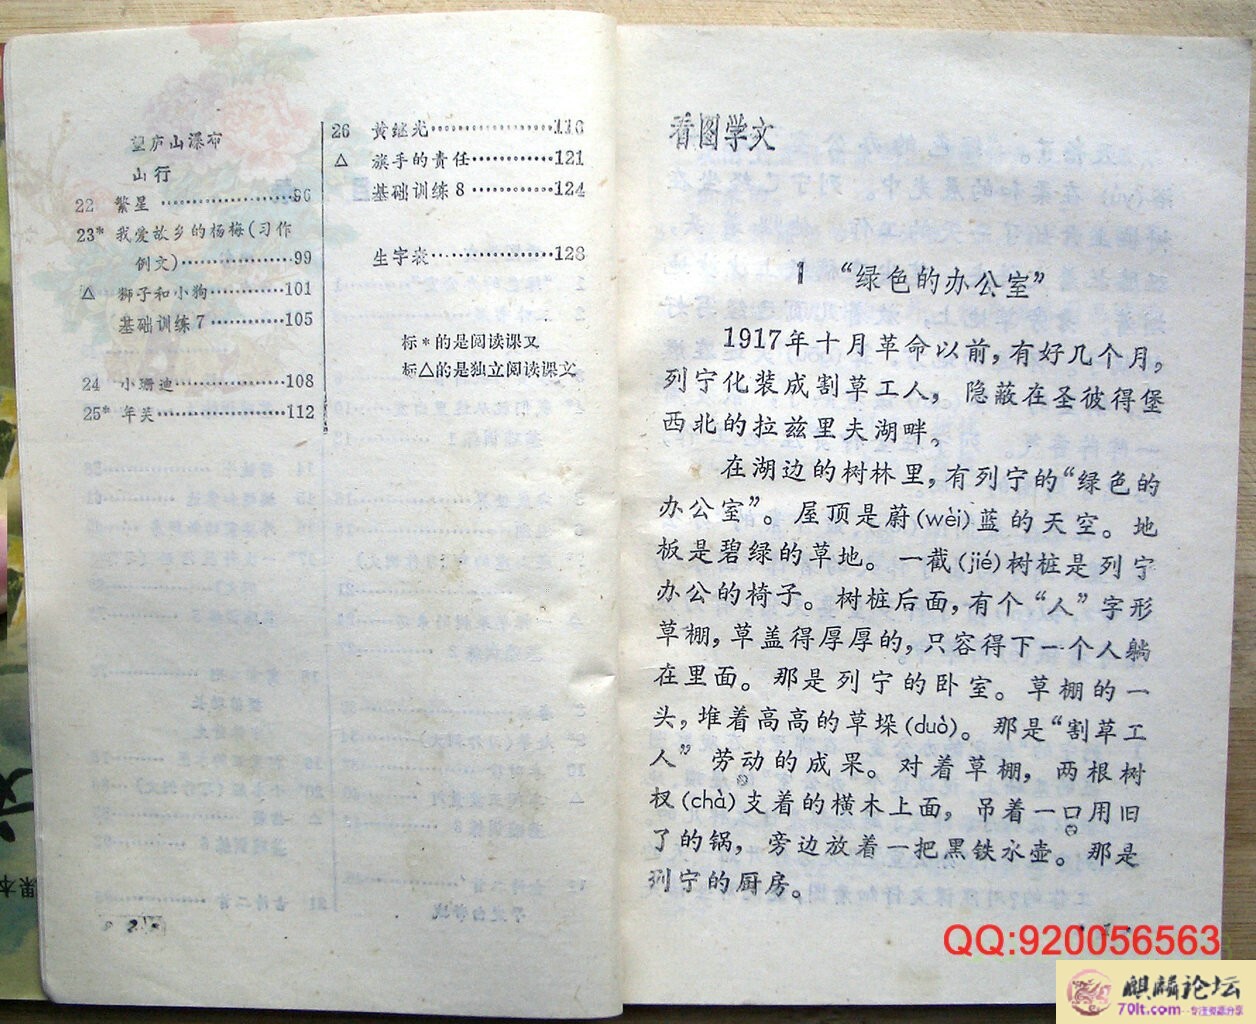 望庐山瀑布
山行
22 繁星 ……………96
23* 我爱故乡的杨梅(习作
例文)……………99
△ 狮子和小狗…………101
基础训练7…………105
24 小珊迪……………108
25* 年关……………112
26 黄继光………………116
△ 旗手的责任…………121
基础训练8…………124
生字表………………128
标*的是阅读课文
标△的是独立阅读课文
看图学文
1 “绿色的办公室”
1917年十月革命以前,有好几个月,
列宁化装成割草工人, 隐蔽在圣彼得堡
西北的拉兹里夫湖畔。
在湖边的树林里,有列宁的“绿色的
办公室”。屋顶是蔚(wèi)蓝的天空。地
板是碧绿的草地。一截(jié)树桩是列宁
办公的椅子。树桩后面,有个“人”字形
草棚,草盖得厚厚的,只容得下一个人躺
在里面。那是列宁的卧室。草棚的一
头,堆着高高的草垛(duò)。那是“割草工
人”劳动的成果。对着草棚,两根树
杈(chà)支着的横木上面,吊着一口用旧
了的锅,旁边放着一把黑铁水壶。那是
列宁的厨房。
·2·
·1·
课本
QQ:920056563
麒麟论坛
70lt.com
--专注资源分享